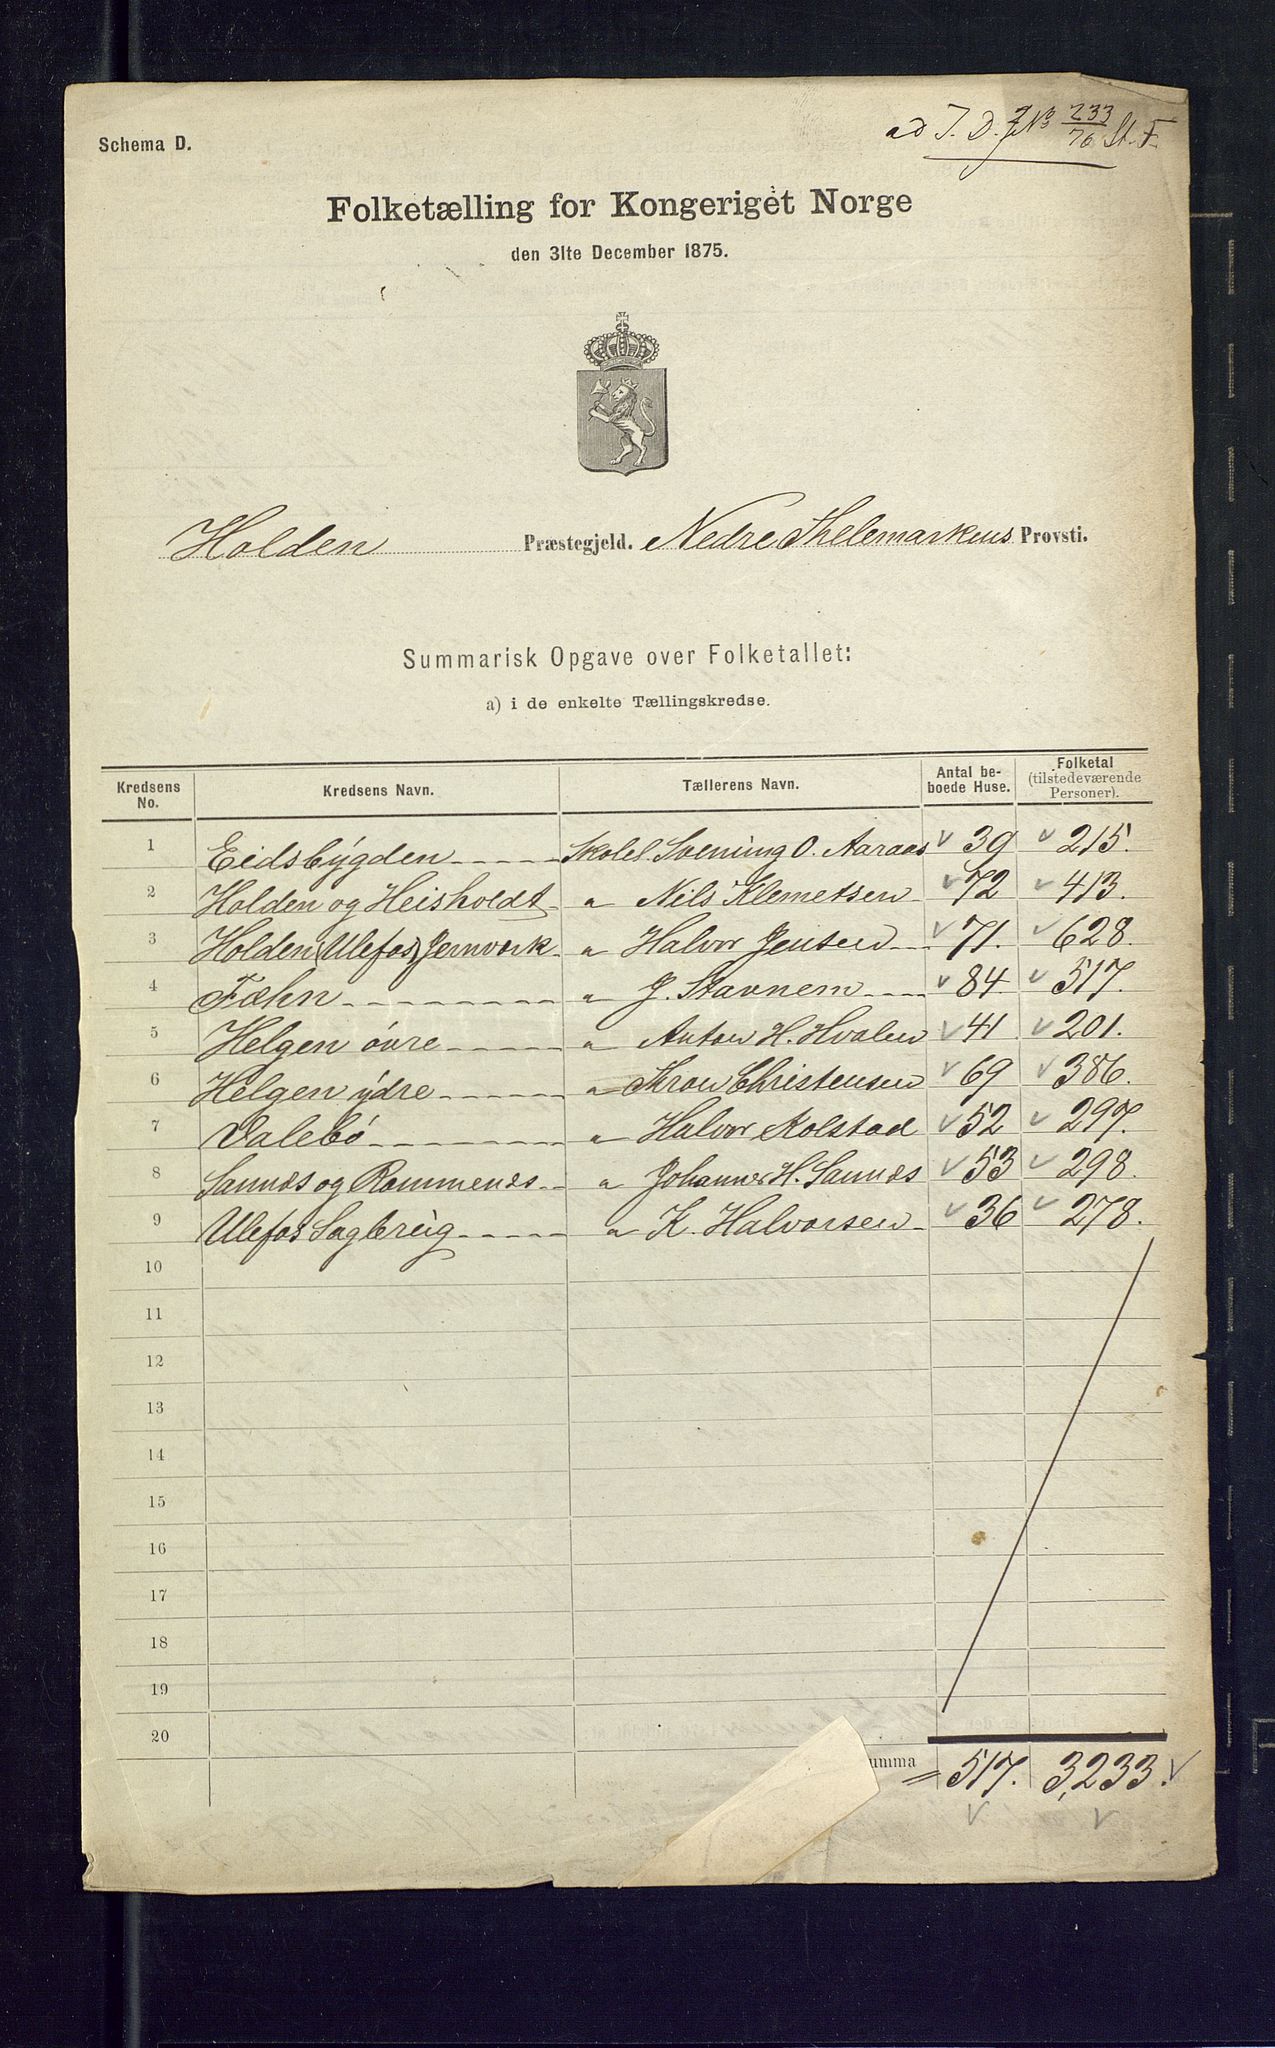 ad J. D. J. No 233/76 St. F.
Schema D.
Folketælling for Kongeriget Norge
den 31te December 1875.
Holden Præstegjeld. Nedre Thelemarkens Provsti.
Summarisk Opgave over Folketallet:
a) i de enkelte Tællingskredse.
Kredsens No. Kredsens Navn. Tællerens Navn. Antal beboede Huse. Folketal (tilstedeværende Personer).
1 Eidsbygden Skolel. Svening O. Aaraas 39 215.
2 Holden og Heisholdt " Nils Klemetsen 72 413.
3 Holden (Ulefos) Jernværk " Halvor Jensen 71. 628.
4 Fæhn " J. Stavnem 84. 517.
5 Helgen övre " Anton H. Hvalen 41 201.
6 Helgen ydre " Thron Christensen 69 386.
7 Valebö " Halvor Kolstad 52 297.
8 Sannæs og Rommenæs " Johannes H. Sannæs 53 298.
9 Ulefos Sagbrug " K. Halvorsen 36 278.
10
11
12
13
14
15
16
17
18
19
20
umma = 517. 3,233.